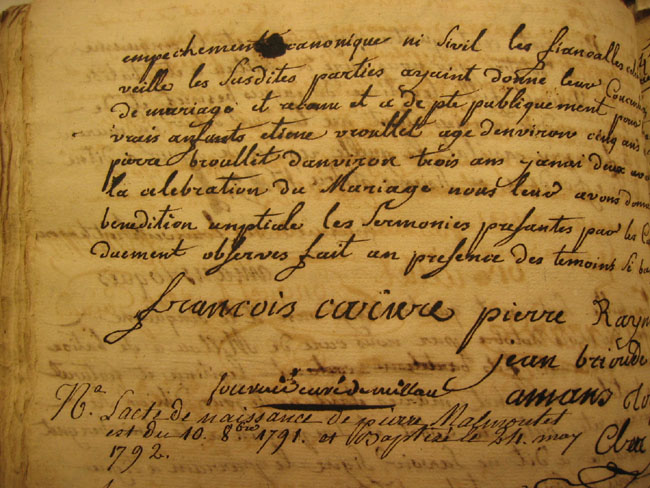 empechement canonique ni sivil les fiancalles
veille les susdites parties ayaint donne leur
de mariage et reconu et a de pte publiquement pour
vrais anfants etiene vroullet age denviron cinq ans
pierre broullit danviron trois ans
la celebration du Mariage nous leur avons
benedition nuptiale les sermonies presantes par les
duement observes fait an presence des temoins si
françois carière pierre Rayn
jean brioude
curé de millau amans
Na. Lacte de naissance de pierre Malmontet
est du 10. 8bre 1791. et Baptisé le 24. may
1792.